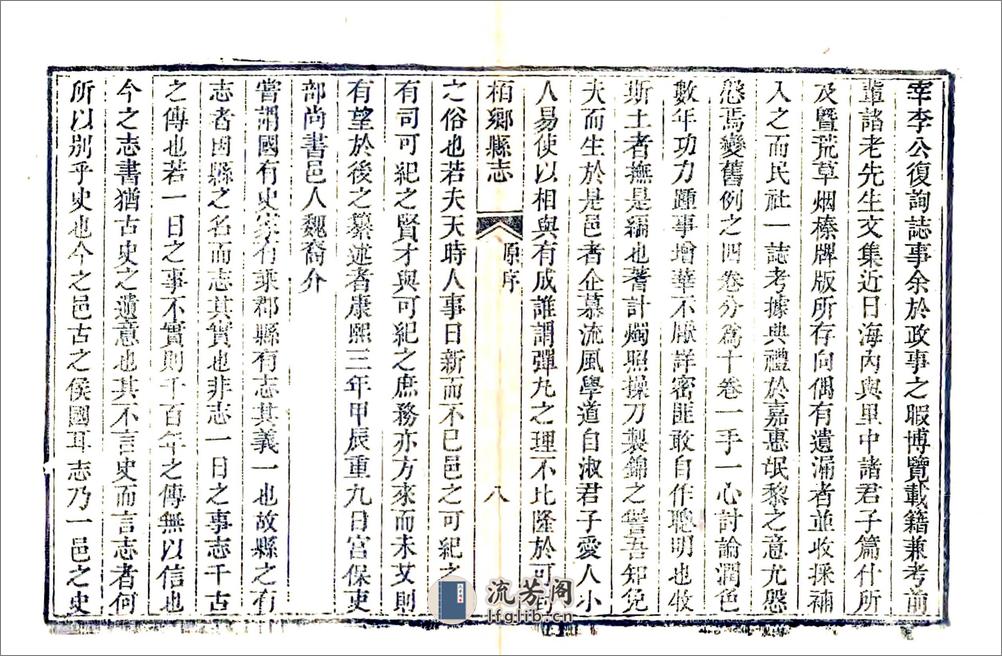 宰李公復詢誌事余於政事之暇博覽載籍兼考前
輩諸老先生文集近日海內與里中諸君子篇什所
及暨荒草烟榛牌版所存向偶有遺漏者並收採補
入之而民社一誌考據典禮於嘉惠氓黎之意尤慇
慇焉變舊例之四卷分爲十卷一手一心討論潤色
數年功力踵事增華不厭詳密匪敢自作聰明也攸
斯土者撫是編也蓍計燭照操刀製錦之譬吾知免
夫而生於是邑者企慕流風學道自淑君子愛人小
人易使以相與有成誰謂彈丸之理不比隆於可封
柏鄉縣志
原序
八
之俗也若夫天時人事日新而不已邑之可紀之
有司可紀之賢才與可紀之庶務亦方來而未艾則
有望於後之纂述者康熙三年甲辰重九日宮保吏
部尚書邑人魏裔介
嘗謂國有史家有乘郡縣有志其義一也故縣之有
志者因縣之名而志其實也非志一日之事志千古
之傳也若一日之事不實則千百年之傳無以信也
今之志書猶古史之遺意也其不言史而言志者何
所以別乎史也今之邑古之侯國耳志乃一邑之史
流芳阁
lfglib.cn